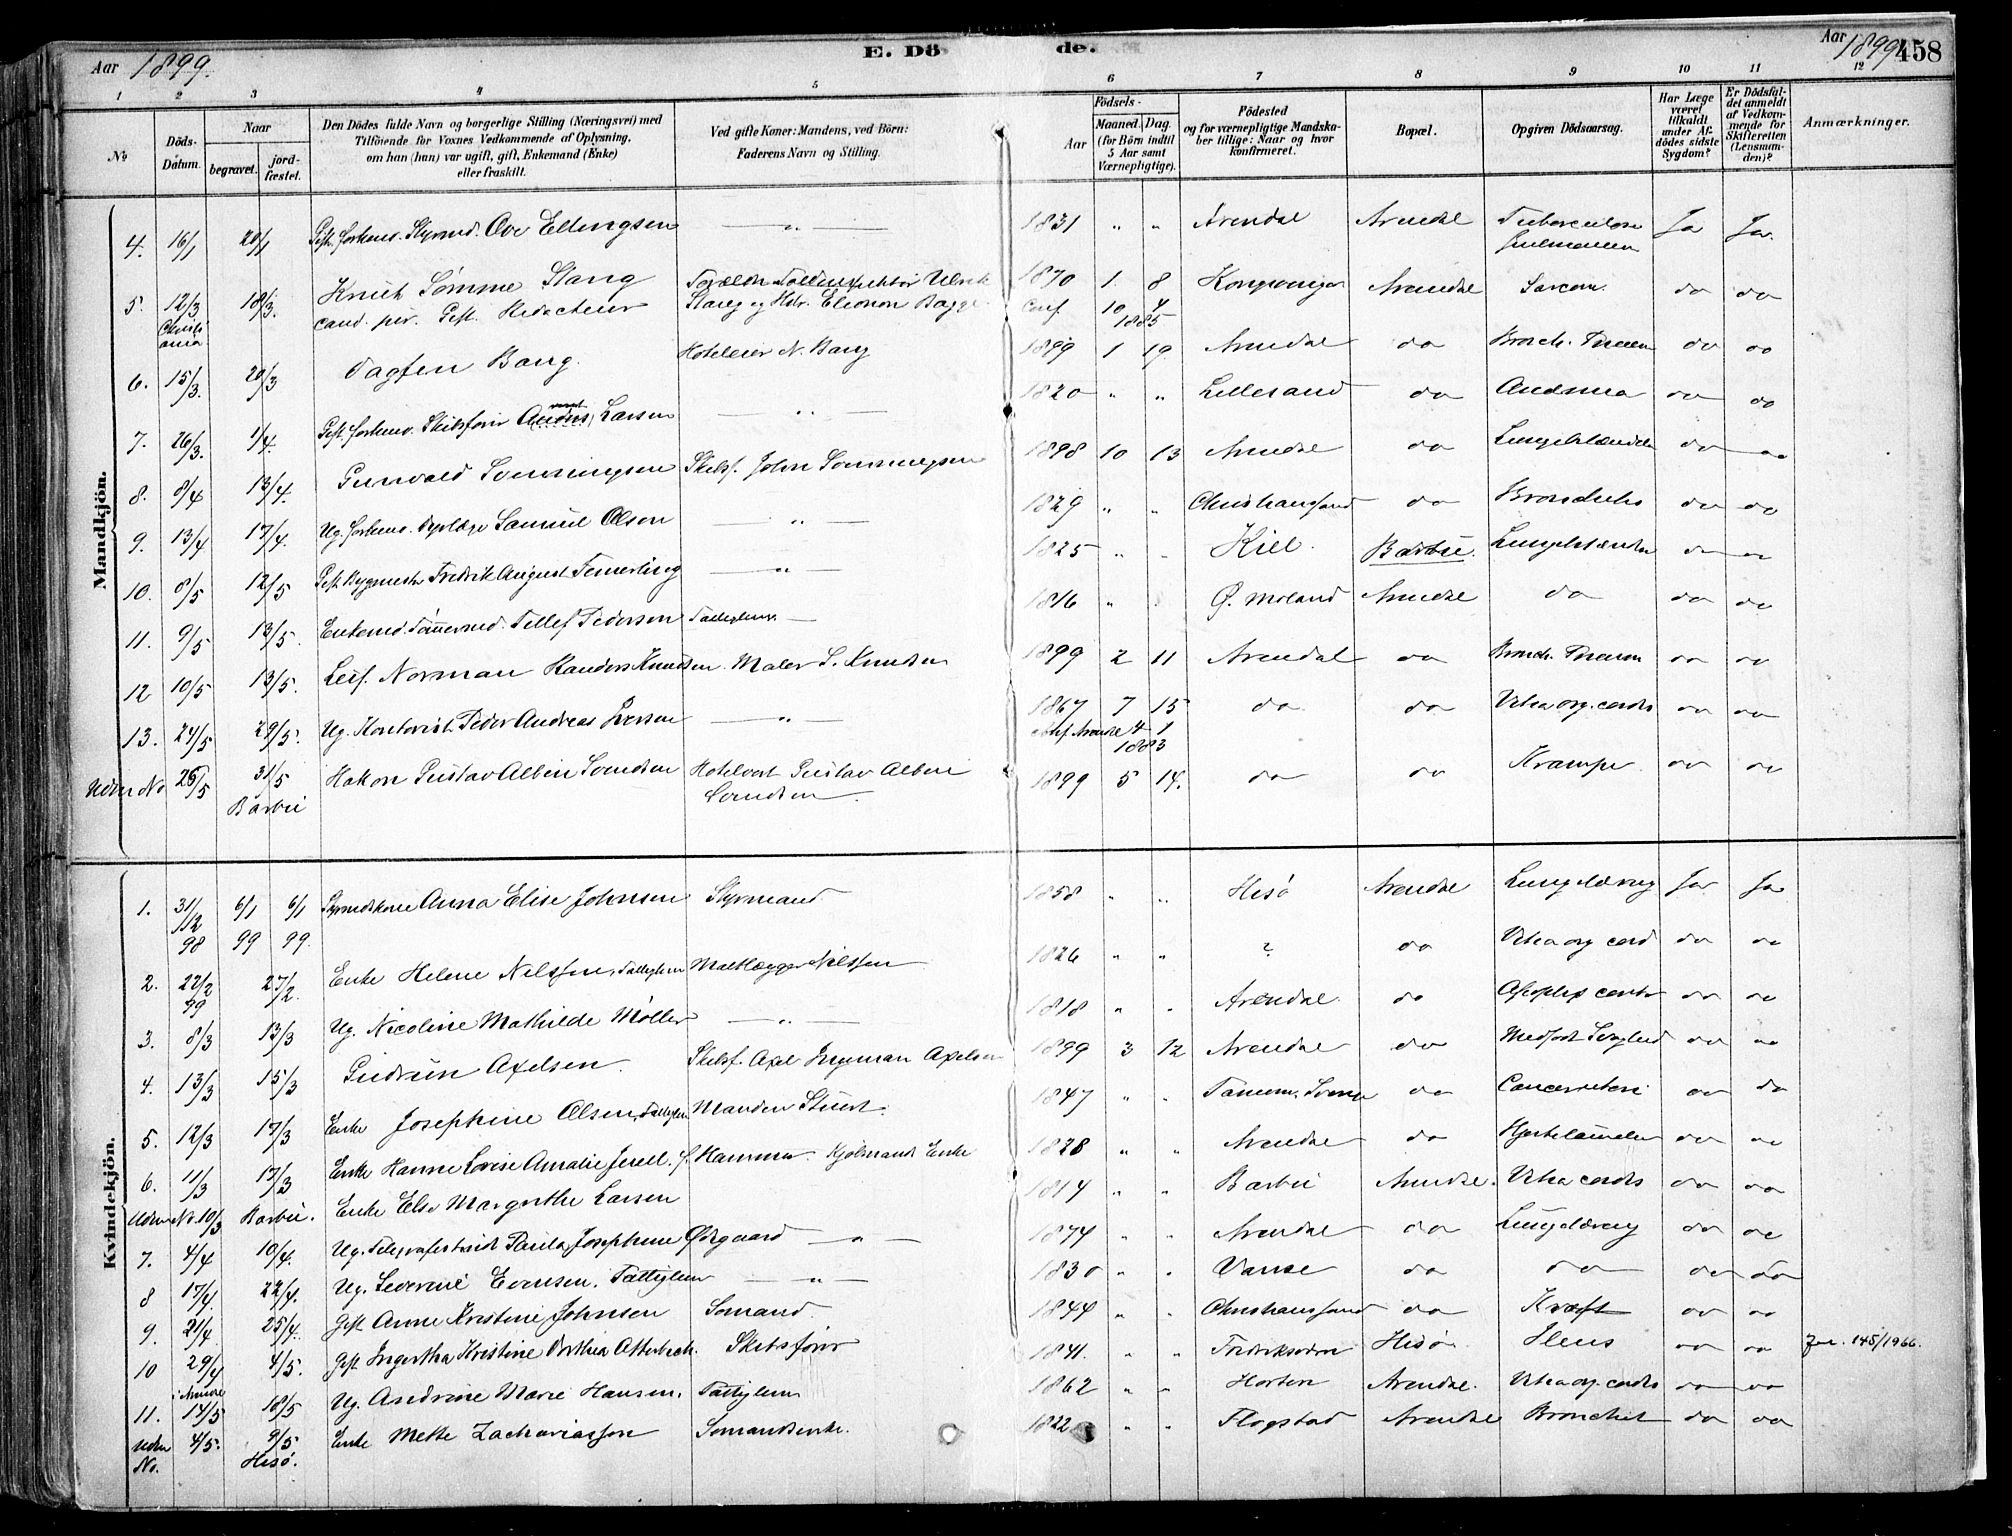 Aar 1899. E. Döde. Aar 1899 458
1 2 3 4 5 6 7 8 9 10 11 12
No Döds-Datum. Naar begravet. jordfæstet. Den Dödes fulde Navn og borgerlige Stilling (Næringsvei) med Tilföiende for Voxnes Vedkommende af Oplysning, om han (hun) var ugift, gift, Enkemand (Enke) eller fraskilt. Ved gifte Koner: Mandens, ved Börn: Faderens Navn og Stilling. Födsels- Aar Maaned. Dag. (for Börn indtil 5 Aar samt Værnepligtige). Födested og for værnepligtige Mandskaber tillige: Naar og hvor konfirmeret. Bopæl. Opgiven Dödsaarsag. Har Læge været tilkaldt under Afdödes sidste Sygdom? Er Dödsfaldet anmeldt af Vedkommende for Skifteretten (Lensmanden)? Anmærkninger.
Mandkjön.
4. 16/1 20/1 Gift forhenv. Styrmd. Ove Ellingsen — „ — 1831 „ „ Arendal Arendal Tuberculose pulmonum Ja Ja.
5. 12/3 Christiania 18/3. Knut Sømme Stang Toldinspektør Ulrik 1870 1. 8 Arendal Sarcom. do do
cand. Gift. Redacteur Stang og Hstr. Eleonor Bagge Conf 10 4 1885
6. 15/3. 20/3 Dagfin Bang. Hoteleier N. Bang 1899 1 19. Arendal do Bronch. Pneum do do
7. 26/3. 1/4. Gift forhenv. Skibsfører Andres Larsen — „ — 1820 „ „ Lillesand do do do
8. 8/4 13/4. Gunvald Sørensen Skibsf. John 1898 10 13 Arendal do Lungebetændelse do do
9. 13/4 17/4. Ug. forhenv. Samuel Olson — „ — 1829 „ „ Christiansand do Bronchitis do do
10. 8/5 12/5 Gift Bygmester Fredrik August Temerling — „ — 1825 „ „ Kiel. Barbu. Lungebetændelse do do
11. 9/5 13/5. Enkemd. Tømmermd. Tellef Pederson Fattiglem. — 1816 „ „ Ø. Moland Arendal do do do
12 10/5 13/5. Leif Norman Randers Knudsen. Maler S. Knudsen 1899 2 11 Arendal do Bronch. Pneum do do
13. 24/5 29/5. Ug. Kontorist Peder Andreas Iversen — „ — 1867 7 15 do do Vitea org. cordis do do
conf Arendal 4 1 1883
Uden No 26/5 31/5 Barbu Hakon Gustav Albin Svendsen Hotelvert Gustav Albin Svendsen. 1899 5 14. do do Krampe do do
Kvindekjön.
1. 31/12 98 6/1 99 6/1 99. Styrmdskone Anna Elise Johnsen Styrmand 1858 „ „ Hisø Arendal Lungetæring Ja Ja.
2. 22/2 99 27/2. Enke Helene Nilssen, Fattiglem Nilssen 1826 „ „ ? do Vitea org cord do do
3. 8/3 13/3 Ug. Nicoline Mathilde Møller — „ — 1818 „ „ Arendal. do Apoplex do do
4. 13/3 15/3 Gudrun Axelsen. Skibsf. Axel Ingeman Axelsen 1899 3 12 Arendal do Medfødt Svaghed do do
5. 12/3 17/3 Enke Josephine Olsen, Fattiglem Manden Stuert. 1847 „ „ do do do
6. 11/3 17/3 Enke Hanne Lovise Amalie Enke 1828 „ „ Arendal do do do
Uden No. 10/3 Barbu. Enke Else Margrethe Larsen 1814 „ „ Barbu Arendal. Vitea cordis do do
7. 4/4 10/4. Ug. Paula Josephine Ødegaard — „ — 1874 „ „ Arendal do Lungetæring do do
8 17/4. 22/4. Ug. Severine Evensen. Fattiglem — „ — 1830 „ „ Vanse do do do do
9. 21/4 25/4. Gift Anne Kristine Johnsen Sømand. 1844 „ „ Christianssand do Kræft do do
10 29/4 i Arendal 4/5. Gift Ingertha Kristine Dorthea Atterbech. Skibsfører 1841. „ „ Hisø. Ileus do do Jnr. 145/1966.
11. 14/5 18/5 Ug. Andrine Marie Hansen. Fattiglem 1862 „ „ Horten Arendal. Vitea org. cordis do do
Uden No. 4/5. 9/5 Hisø. Enke Mette Zachariasson Sømandsenke. 1822 „ „ Flogstad Arendal Bronchit do do